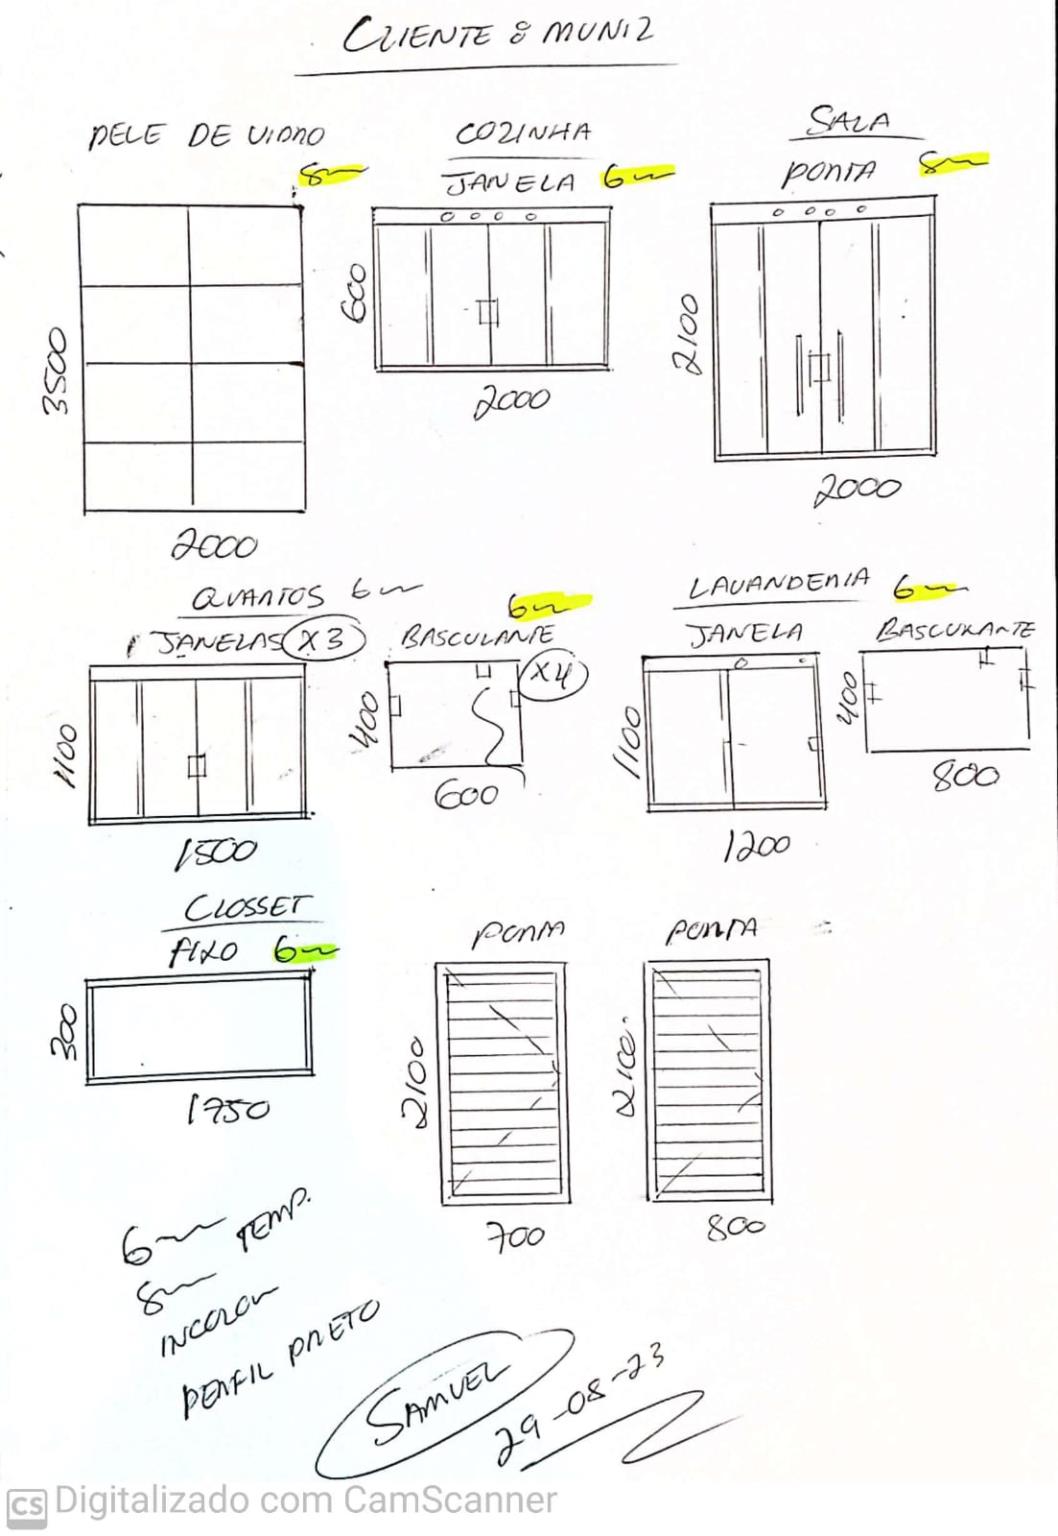 CLIENTE : MUNIZ
PELE DE VIDRO
8m
3500
2000
COZINHA
JANELA 6m
600
2000
SALA
PORTA 8m
2100
2000
QUARTOS 6m
JANELAS X3
1100
1500
6m
BASCULANTE
X4
400
600
LAVANDERIA 6m
JANELA
1100
1200
BASCULANTE
400
800
CLOSSET
FIXO 6m
300
1750
PORTA
2100
700
PORTA
2100
800
6m TEMP.
8m
INCOLOR
PERFIL PRETO
SAMUEL
29-08-23
CS Digitalizado com CamScanner